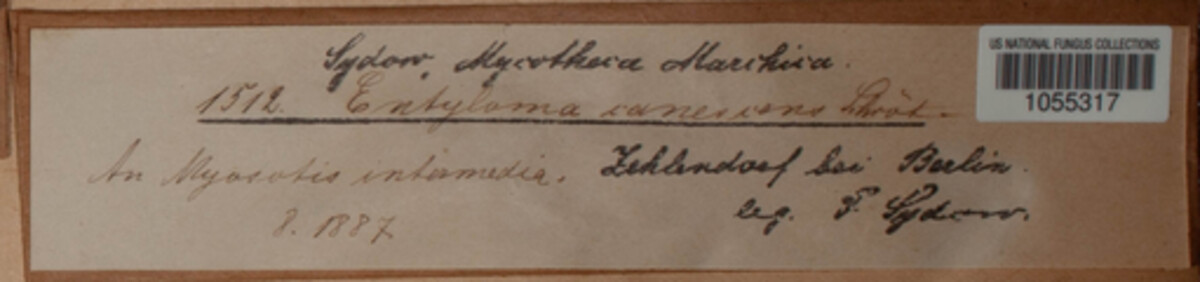 Sydow, Mycotheca Marchica.
US NATIONAL FUNGUS COLLECTIONS
1055317
1512. Entyloma canescens Schröt.
An Myosotis intermedia. Zehlendorf bei Berlin.
8. 1887 leg. P. Sydow.